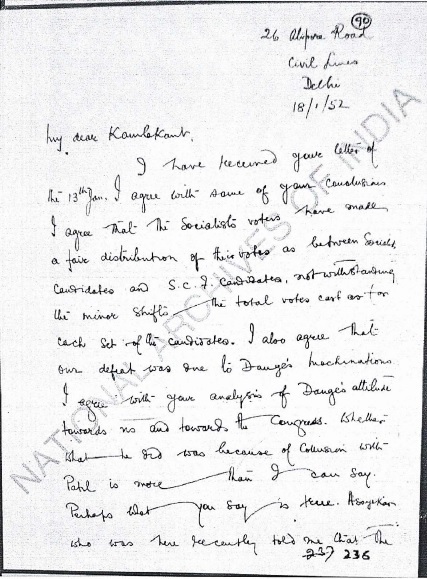 90
26 Alipore Road
Civil Lines
Delhi
18/1/52
My dear Kamlakant,
I have received your letter of
the 13th Jan. I agree with some of your conclusions
I agree that the Socialists voters have made
a fair distribution of their votes as between Socialist
candidates and S.C.F. Candidates, notwithstanding
the minor shifts the total votes cast as for
each set of the candidates. I also agree that
our defeat was due to Dange's machinations.
I agree with your analysis of Dange's attitude
towards us and towards the Congress. Whether
what he did was because of Collusion with
Patil is more than I can say.
Perhaps what you say is true.
who was here recently told me that the
237 236
NATIONAL ARCHIVES OF INDIA